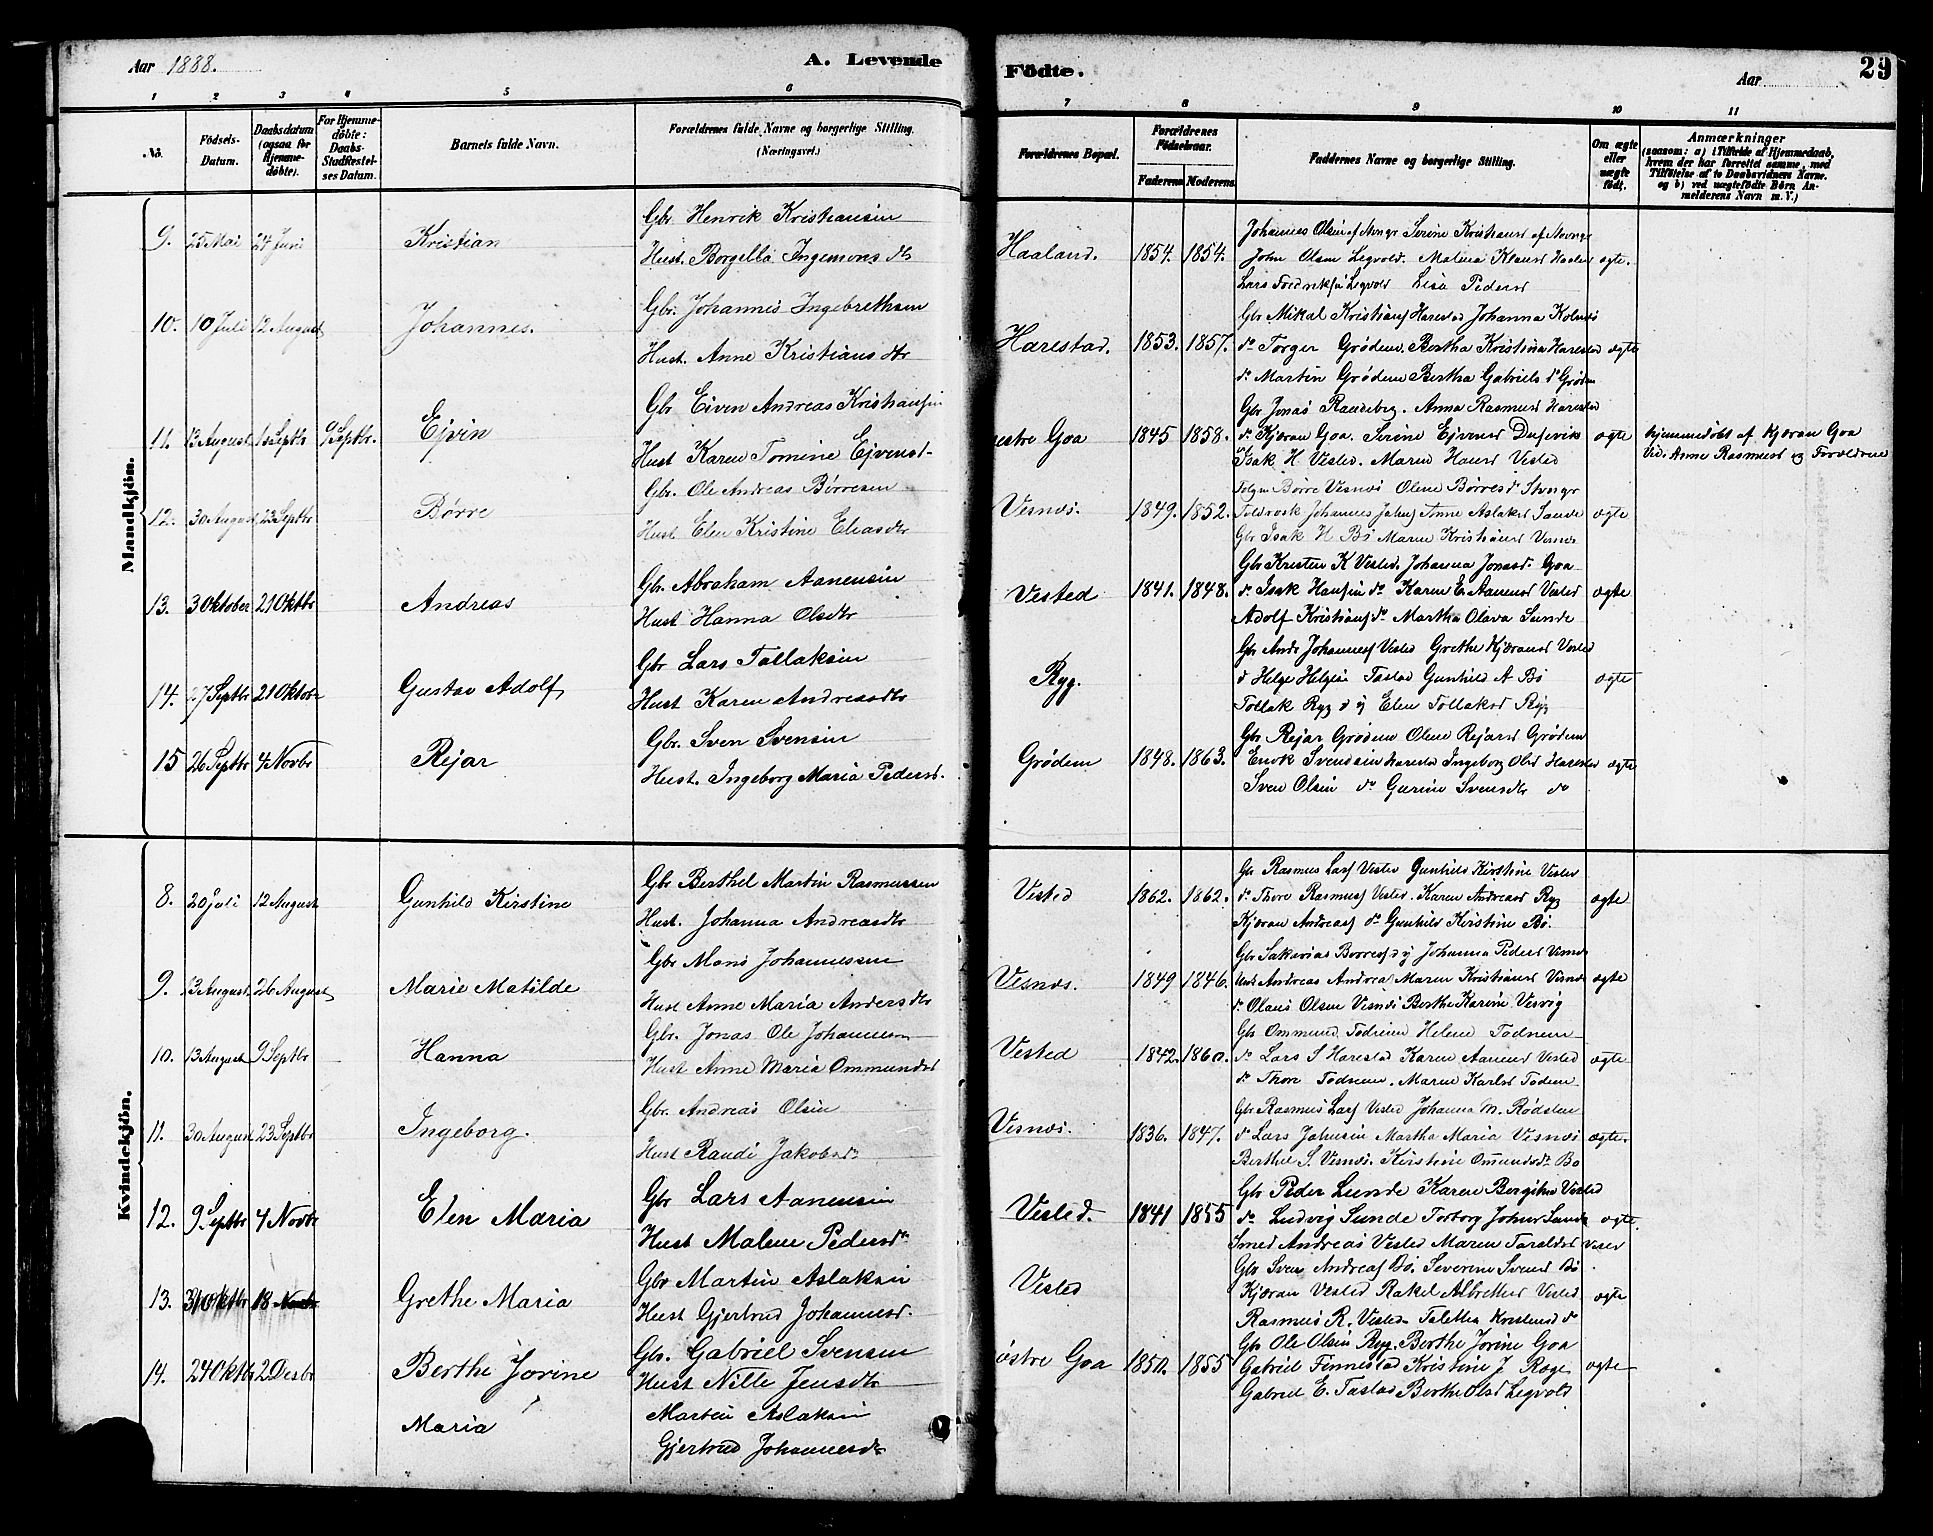 Aar 1888.
A. Levende
Födte.
Aar
29
1 2 3 4 5 6 7 8 9 10 11
No.
Födsels-
Datum.
Daabsdatum
(ogsaa for
Hjemme-
döbte).
For Hjemme-
döbte:
Daabs-
Stadfæstel-
ses Datum.
Barnets fulde Navn.
Forældrenes fulde Navne og borgerlige Stilling.
(Næringsvei.)
Forældrenes Bopæl.
Forældrenes
Födselsaar.
Faderens Moderens
Faddernes Navne og borgerlige Stilling.
Om ægte
eller
uægte
födt.
Anmærkninger
(saasom: a) i Tilfælde af Hjemmedaab,
hvem der har forrettet samme, med
Tilföielse af to Daabsvidners Navne.
og b) ved uægtefödte Börn An-
melderens Navn m. V.)
Mandkjön.
9. 25 Mai 24 Juni Kristian
Gbr. Henrik Kristiansen
Hust. Borgella Ingemons dtr
Haaland. 1854. 1854.
Johannes Olsen af Stvngr Serine Kristiansd af Stvngr
John Olsen Legvold. Malina Klausd Haaland ægte.
Lars Fredriksen Legvold Lisa Pedersd
10. 10 Juli 12 August Johannes.
Gbr. Johannes Ingebrethsen
Hust. Anne Kristians dtr
Harestad. 1853. 1857.
Gbr Mikal Kristians Harestad Johanna Kolnæs
do Torger Grödem. Bertha Kristina Harestad ægte
do Martin Grödem Bertha Gabriels d Grödem
11. 13 August 9 Septbr. Ejvin
Gbr Eiven Andreas Kristiansen
Hust Karen Tomine Ejvensd
estre Goa 1845 1858.
Gbr Jonas Randeberg. Anna Rasmusd Harestad
do Kjæran Goa. Serine Ejvensd Dusevik ægte
Isak H Vested. Maren Hansd Vested
hjemmedöbt af Kjæran Goa
Vid. Anne Rasmusd og Forældrene
12. 30 August 23 Septbr Börre
Gbr. Ole Andreas Börresen
Hust Elen Kristine Eliasdtr
Visnæs. 1849. 1852.
Börre Visnæs Olene Börresd Stvngr
Johannes Johns Anne Aslaksd Sande ægte
Gbr Isak H Bö Maren Kristiansd Visnæs
13. 3 Oktober 21 Oktbr Andreas
Gbr. Abraham Aanensen
Hust Hanna Olsdtr
Vested 1841. 1848.
Gbr Kristen K Vested. Johanna Jonasd. Goa
do Isak Hansen do Karen E. Aanensd Vested ægte
Adolf Kristians do Martha Olava Sunde
14. 27 Septbr 21 Oktobr Gustav Adolf
Gbr Lars Tollaksen
Hust Karen Andreasdtr
Ryg.
Gbr Andr Johanness Vested Grethe Kjæransd Vested
d Helge Helgesen Tastad Gunhild A Bö ægte
Tollak Ryg d y Elen Tollaksd Ryg
15 26 Septbr 4 Novbr Rejar
Gbr. Sven Svensen
Hust. Ingeborg Maria Pedersd.
Grödem 1848. 1863.
Gbr Rejar Grödem Olene Rejarsd Grödem
Enok Svendsen Harestad Ingeborg Olsd Harestad ægte
Sven Olsen do Gurine Svensdtr do
Kvindekjön.
8. 20 Juli 12 August Gunhild Kirstine
Gbr Berthel Martin Rasmussen
Hust. Johanna Andreasdtr
Vested 1862. 1862.
Gbr Rasmus Lars Vested Gunhild Kirstine Vested
do Thore Rasmuss Vested. Karen Andreasd Ryg ægte
Kjæran Andreass do Gunhild Kirstine Bö.
9. 13 August 26 August Marie Matilde
Gbr Mons Johannessen
Hust Anne Maria Anders dtr
Visnæs. 1849 1846.
Gbr Sakarias Börres d y Johanna Pedersd Visnæs
Andreas Andreas Maren Kristiansd Visnæs ægte
do Olaus Olsen Visnæs Berthe Karine Vesvig
10. 13 August 9 Septbr Hanna
Gbr. Jonas Ole Johannessen
Hust Anne Maria Ommundsd
Vested 1842. 1860.
Gbr Ommund Todneim Helene Todnem
do Lars S Harestad Karen Aanensd Vested ægte
do Thore Todnem. Maren Karlsd Todnem
11. 30 August 23 Septbr Ingeborg.
Gbr. Andreas Olsen
Hust Randi Jakobsdtr
Visnæs. 1836. 1847.
Gbr Rasmus Lars Vested Johanna M. Rödsten
do Lars Johnsen Martha Maria Visnæs ægte.
Berthel S. Visnæs. Kirstine Omundsdtr Bö
12. 9 Septbr 4 Novbr Elen Maria
Gbr Lars Aanensen
Hust Malene Pedersdtr
Vested. 1841 1855
Gbr Peder Sunde Karen Bergithe Vested
do Ludvig Sunde Torborg Johnsd Sunde ægte
Smed Andreas Vested Maren Taraldsd Vested
13. 31 Oktbr 18 Novbr Grethe Maria
Gbr Martin Aslaksen
Hust Gjertrud Johannesd.
Vested
Gbr Sven Andreas Bö. Severine Svensd Bö
Kjæran Vested Rakel Albrettsd Vested ægte
Rasmus R. Vested. Taletta Kristensd do
14. 24 Oktbr 2 Desbr Berthe Jorine
Gbr. Gabriel Svensen
Hust Nille Jensdtr
östre Goa 1850. 1855
Gbr Ole Olsen Ryg. Berthe Jorine Goa
Gabriel Finnestad Kristine J Roge ægte
Gabriel E. Tastad Berthe Olsd Legvold
Maria
Martin Aslaksen
Gjertrud Johannesdtr